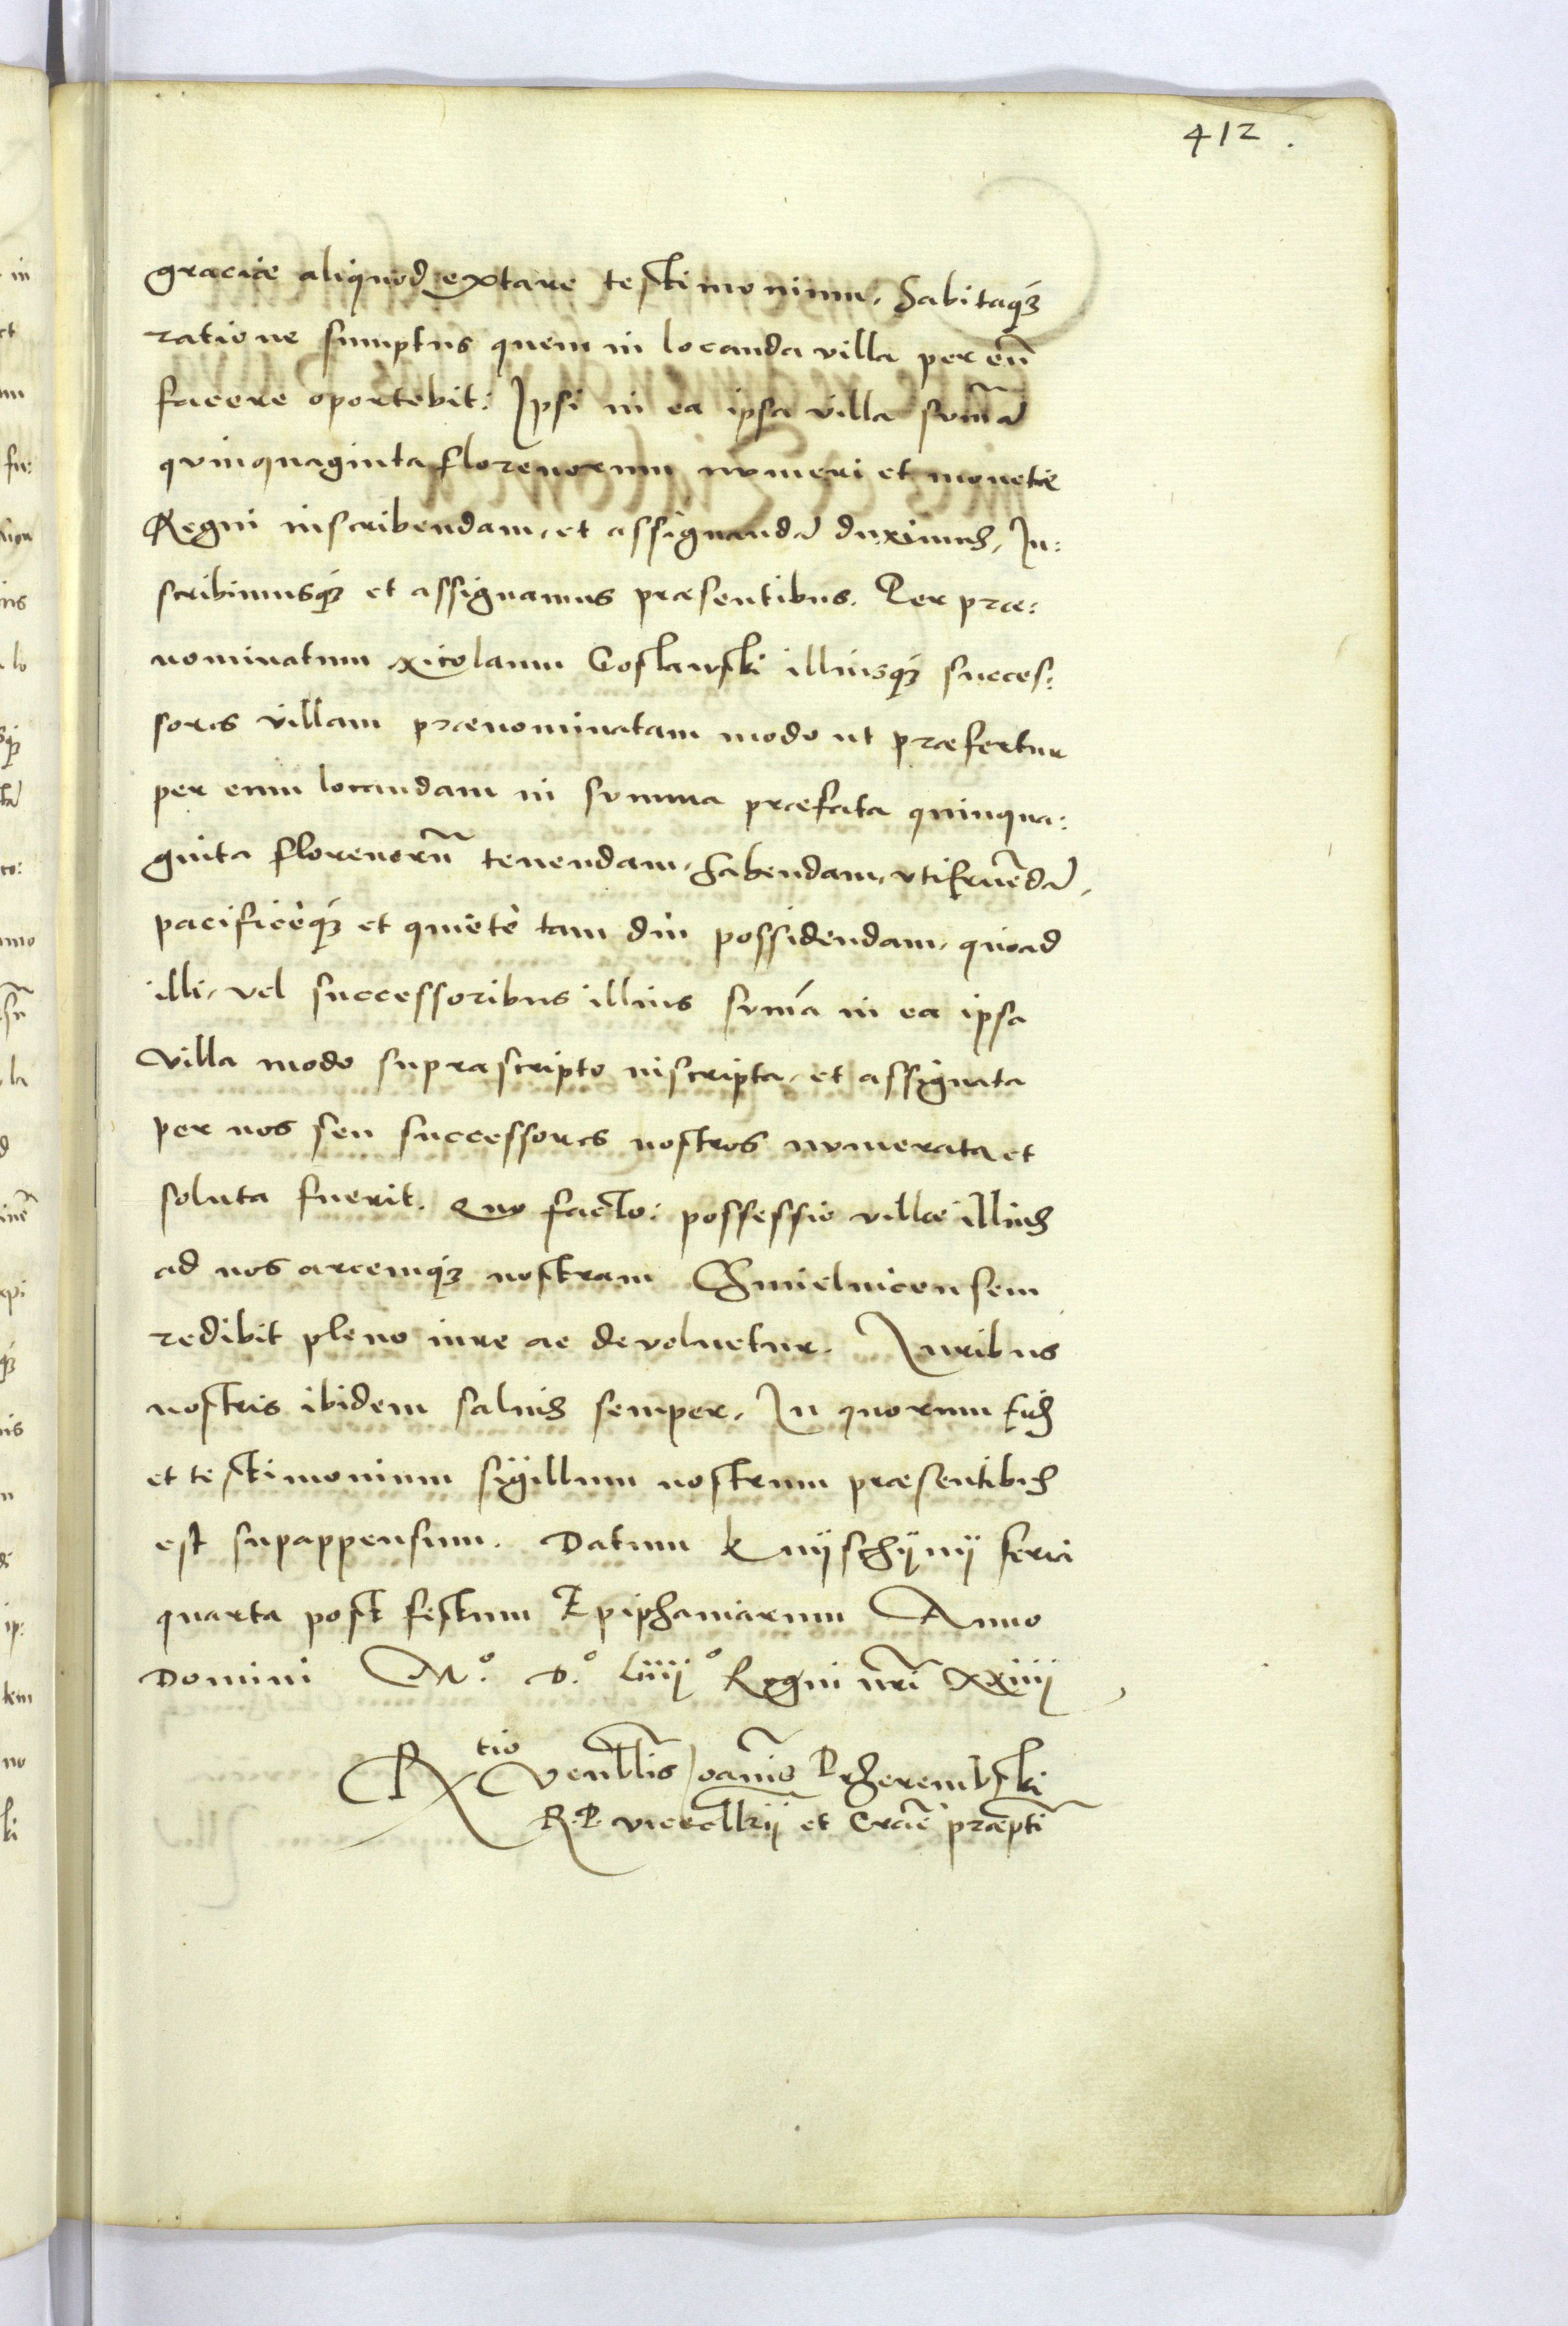 412.
graciæ aliquod extare testimonium, habitaq3
ratione sumptus quem in locanda villa per eũ
facere oportebit: Ipsi in ea ipsa villa sum̃ã
quinquaginta florenorum numeri et monetæ
Regni inscribendam, et assignandã duximus, In:
scribimusq3 et assignamus præsentibus. Per præ:
nominatum Nicolaum Goslawski illiusq3 succes:
sores villam prænominatam modo ut præfertur
per eum locandam in summa præfata quinqua:
ginta florenorũ tenendam, habendam, vtifruẽdã,
pacificeq3 et quiete tam diu possidendam, quoad
illi, vel successoribus illius sum̃a in ea ipsa
villa modo suprascripto inscripta, et assignata
per nos seu successores nostros numerata et
soluta fuerit. Quo facto: possessio villæ illius
ad nos arcemq3 nostram Chmielnicensem
redibit pleno iure ac devoluetur. Iuribus
nostris ibidem saluis semper, In quorum fid3
et testimonium sigillum nostrum præsentibus
est supappensum. Datum Knijschijnij feria
quarta post festum Epiphaniarum Anno
Domini Mº. Dº. Liiijº Regni nr̃i xxiiij
Rtio Venblis Joannis Prherembski
R. P. vicecllrij et Craciẽ præptĩ